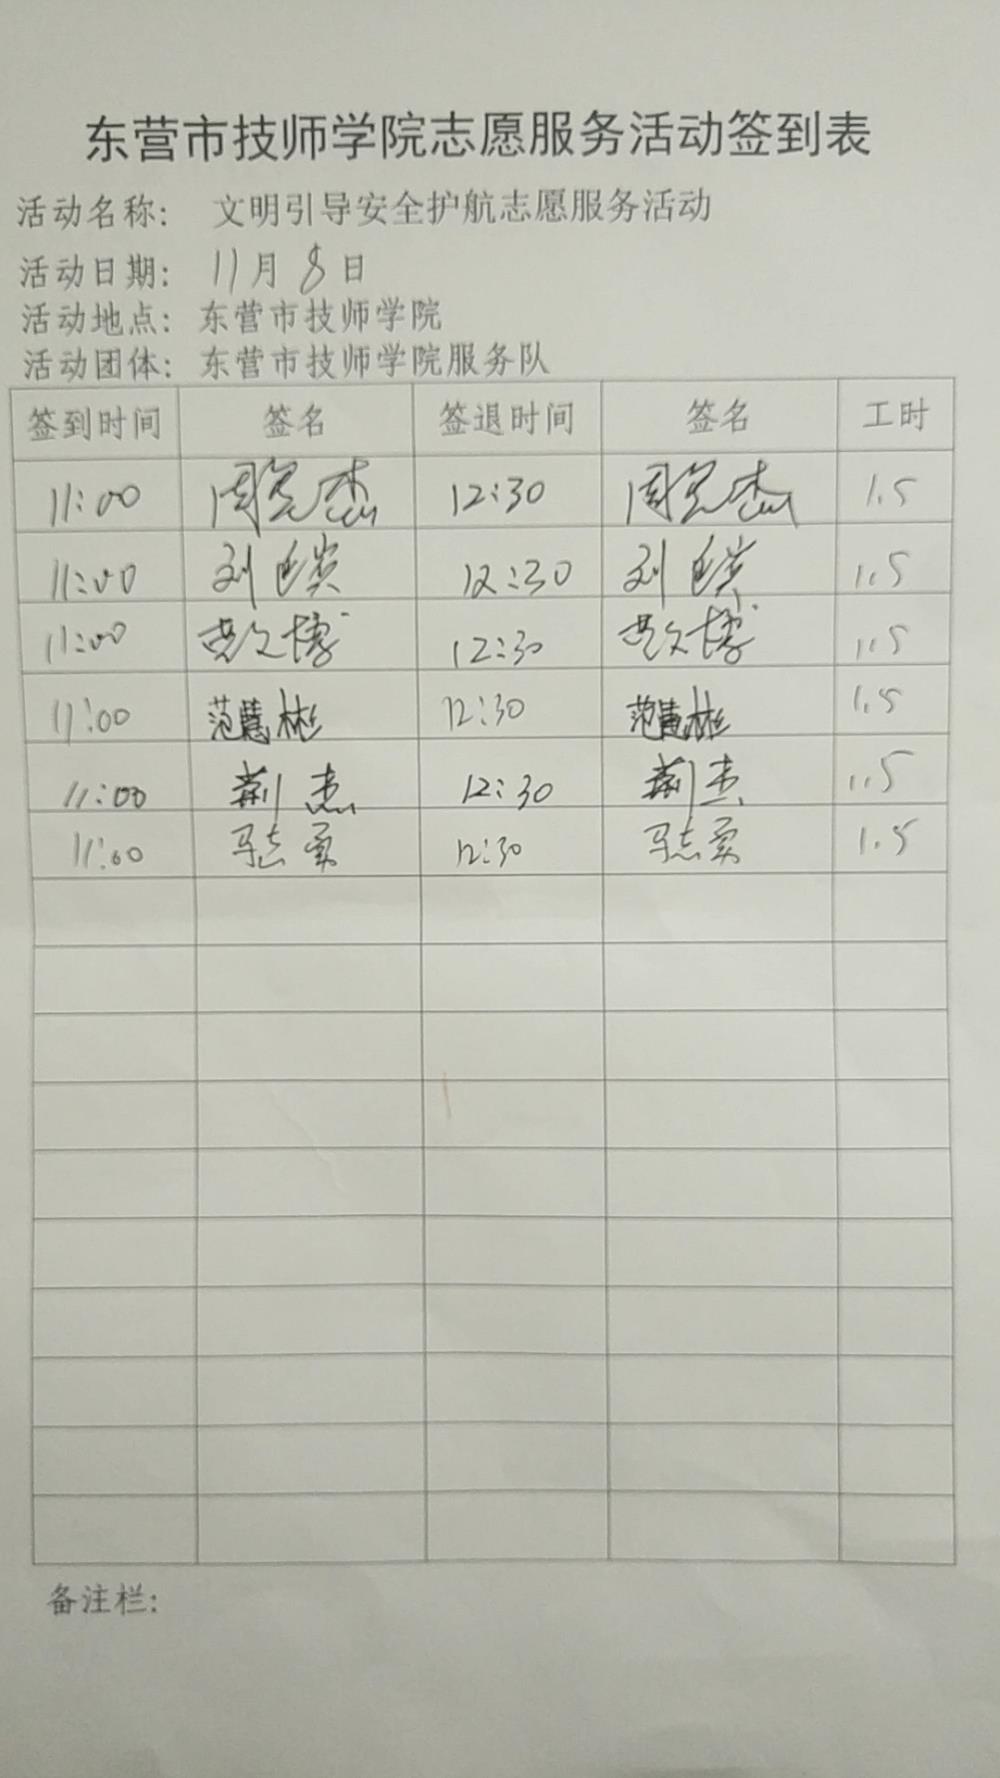 东营市技师学院志愿服务活动签到表
活动名称: 文明引导安全护航志愿服务活动
活动日期: 11月8日
活动地点: 东营市技师学院
活动团体: 东营市技师学院服务队
签到时间 签名 签退时间 签名 工时
11:00 周宪杰 12:30 周宪杰 1.5
11:00 刘 12:30 刘 1.5
11:00 文博 12:30 文博 1.5
11:00 范慧彬 12:30 范慧彬 1.5
11:00 荆杰 12:30 荆杰 1.5
11:00 马志勇 12:30 马志勇 1.5
备注栏: